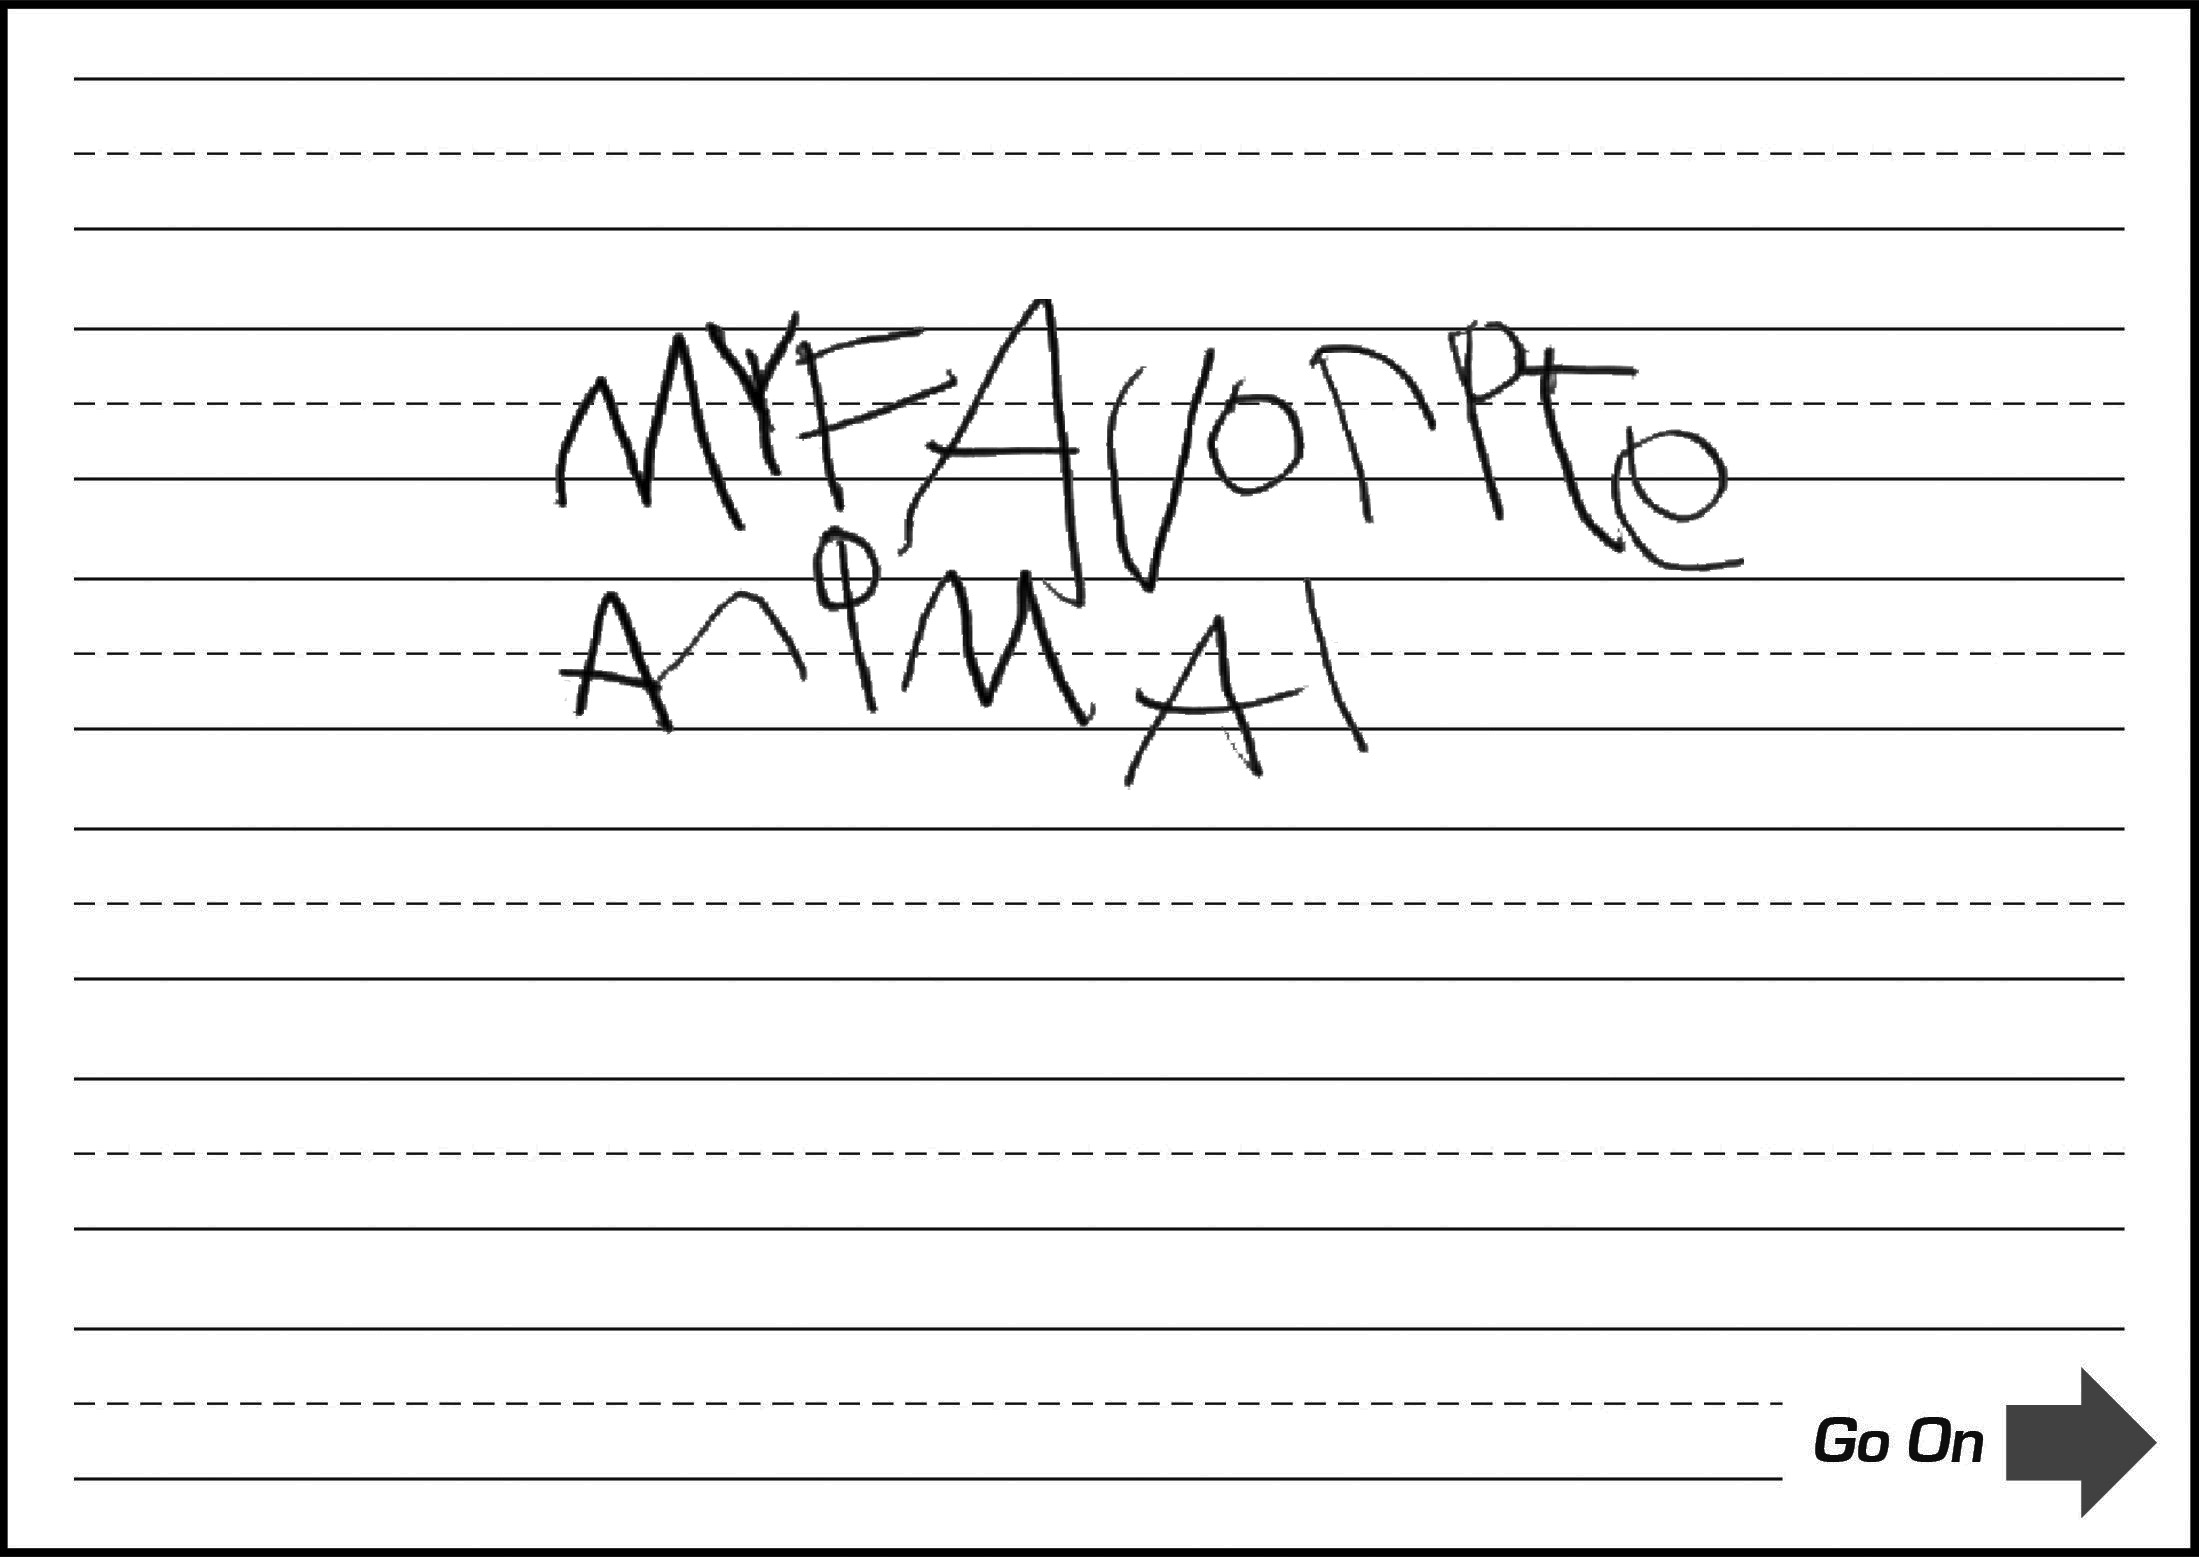 MY FAvorite
AniMAl
Go On